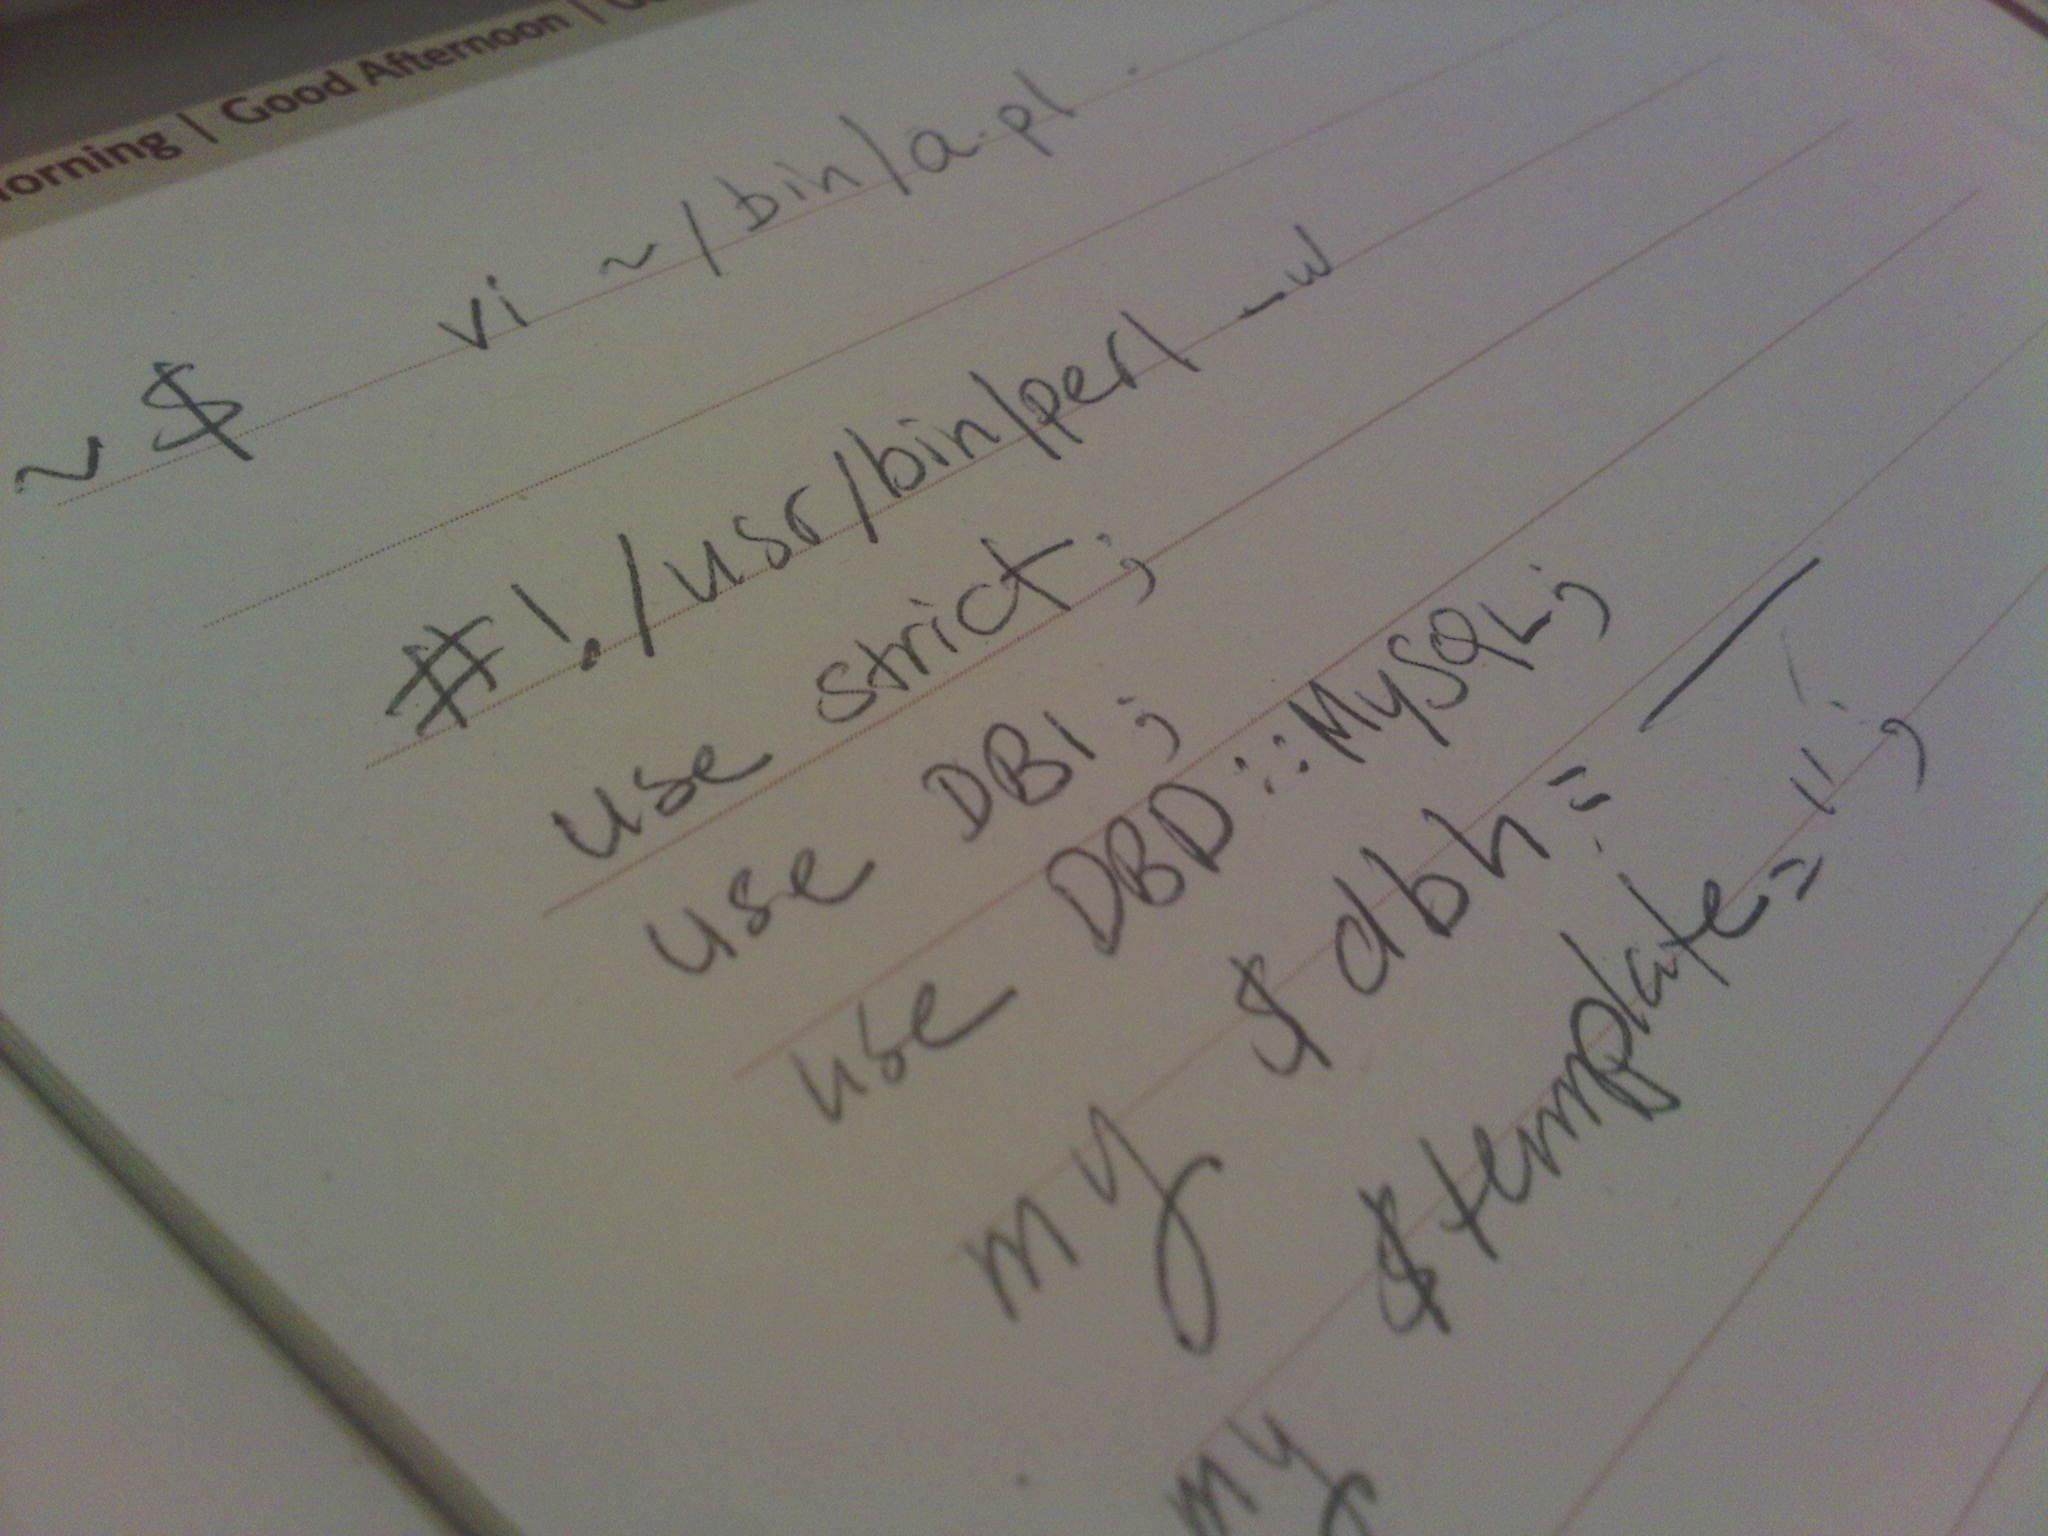 orning | Good Afternoon |
~$ vi ~/bin/a.pl
#!/usr/bin/perl -w
use strict;
use DBI;
use DBD::MySQL;
my $dbh =
my $template = "";